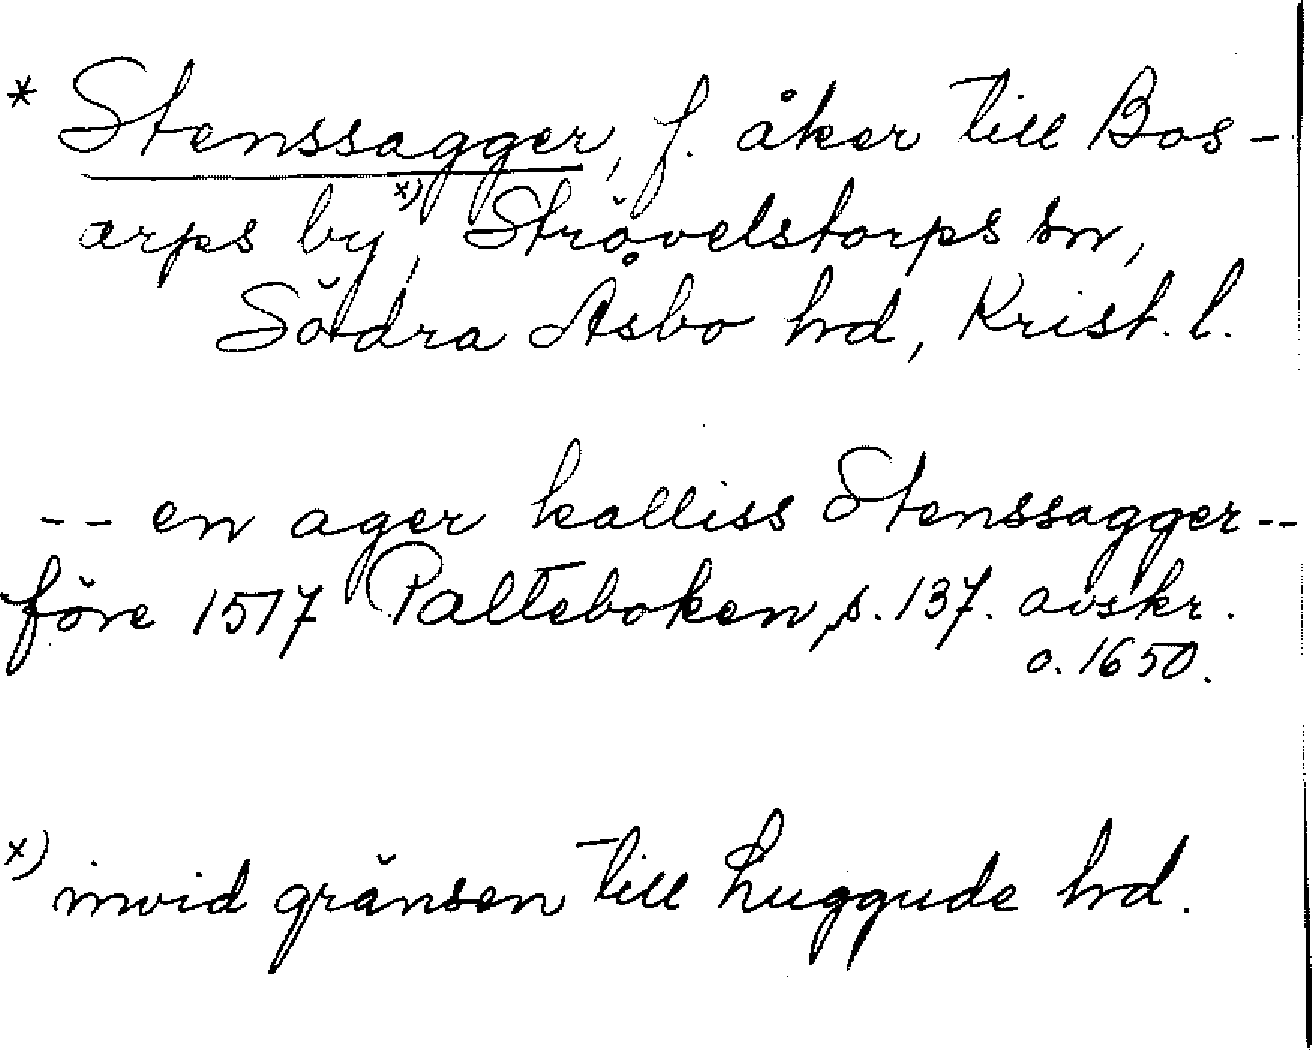 * Stenssagger, f. åker till Bos-
arps by x), Strövelstorps sn,
Södra Åsbo hd, Krist. l.
-- en ager kalliss Stenssagger --
före 1517 Palteboken, s. 137. avskr.
o. 1650.
x) invid gränsen till Luggude hd.